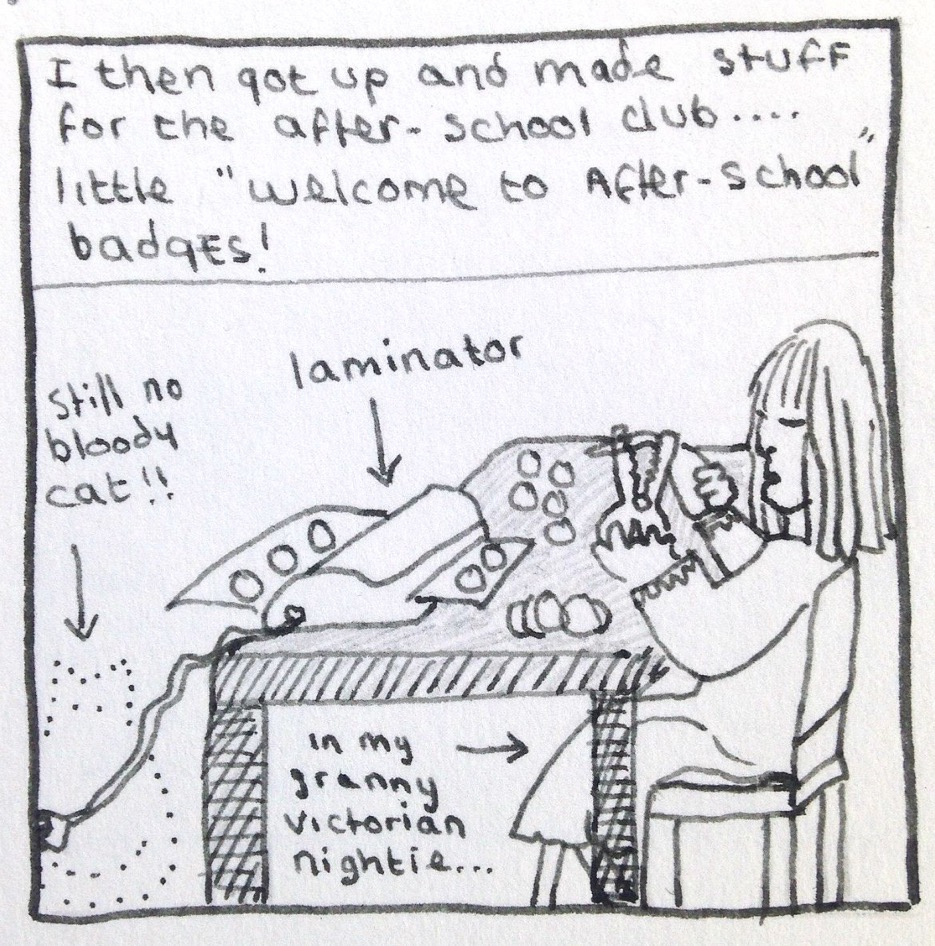 I then got up and made stuff
for the after-school club.....
little "welcome to After-School"
badges!
laminator
Still no
bloody
cat!!
in my
granny
victorian
nightie...